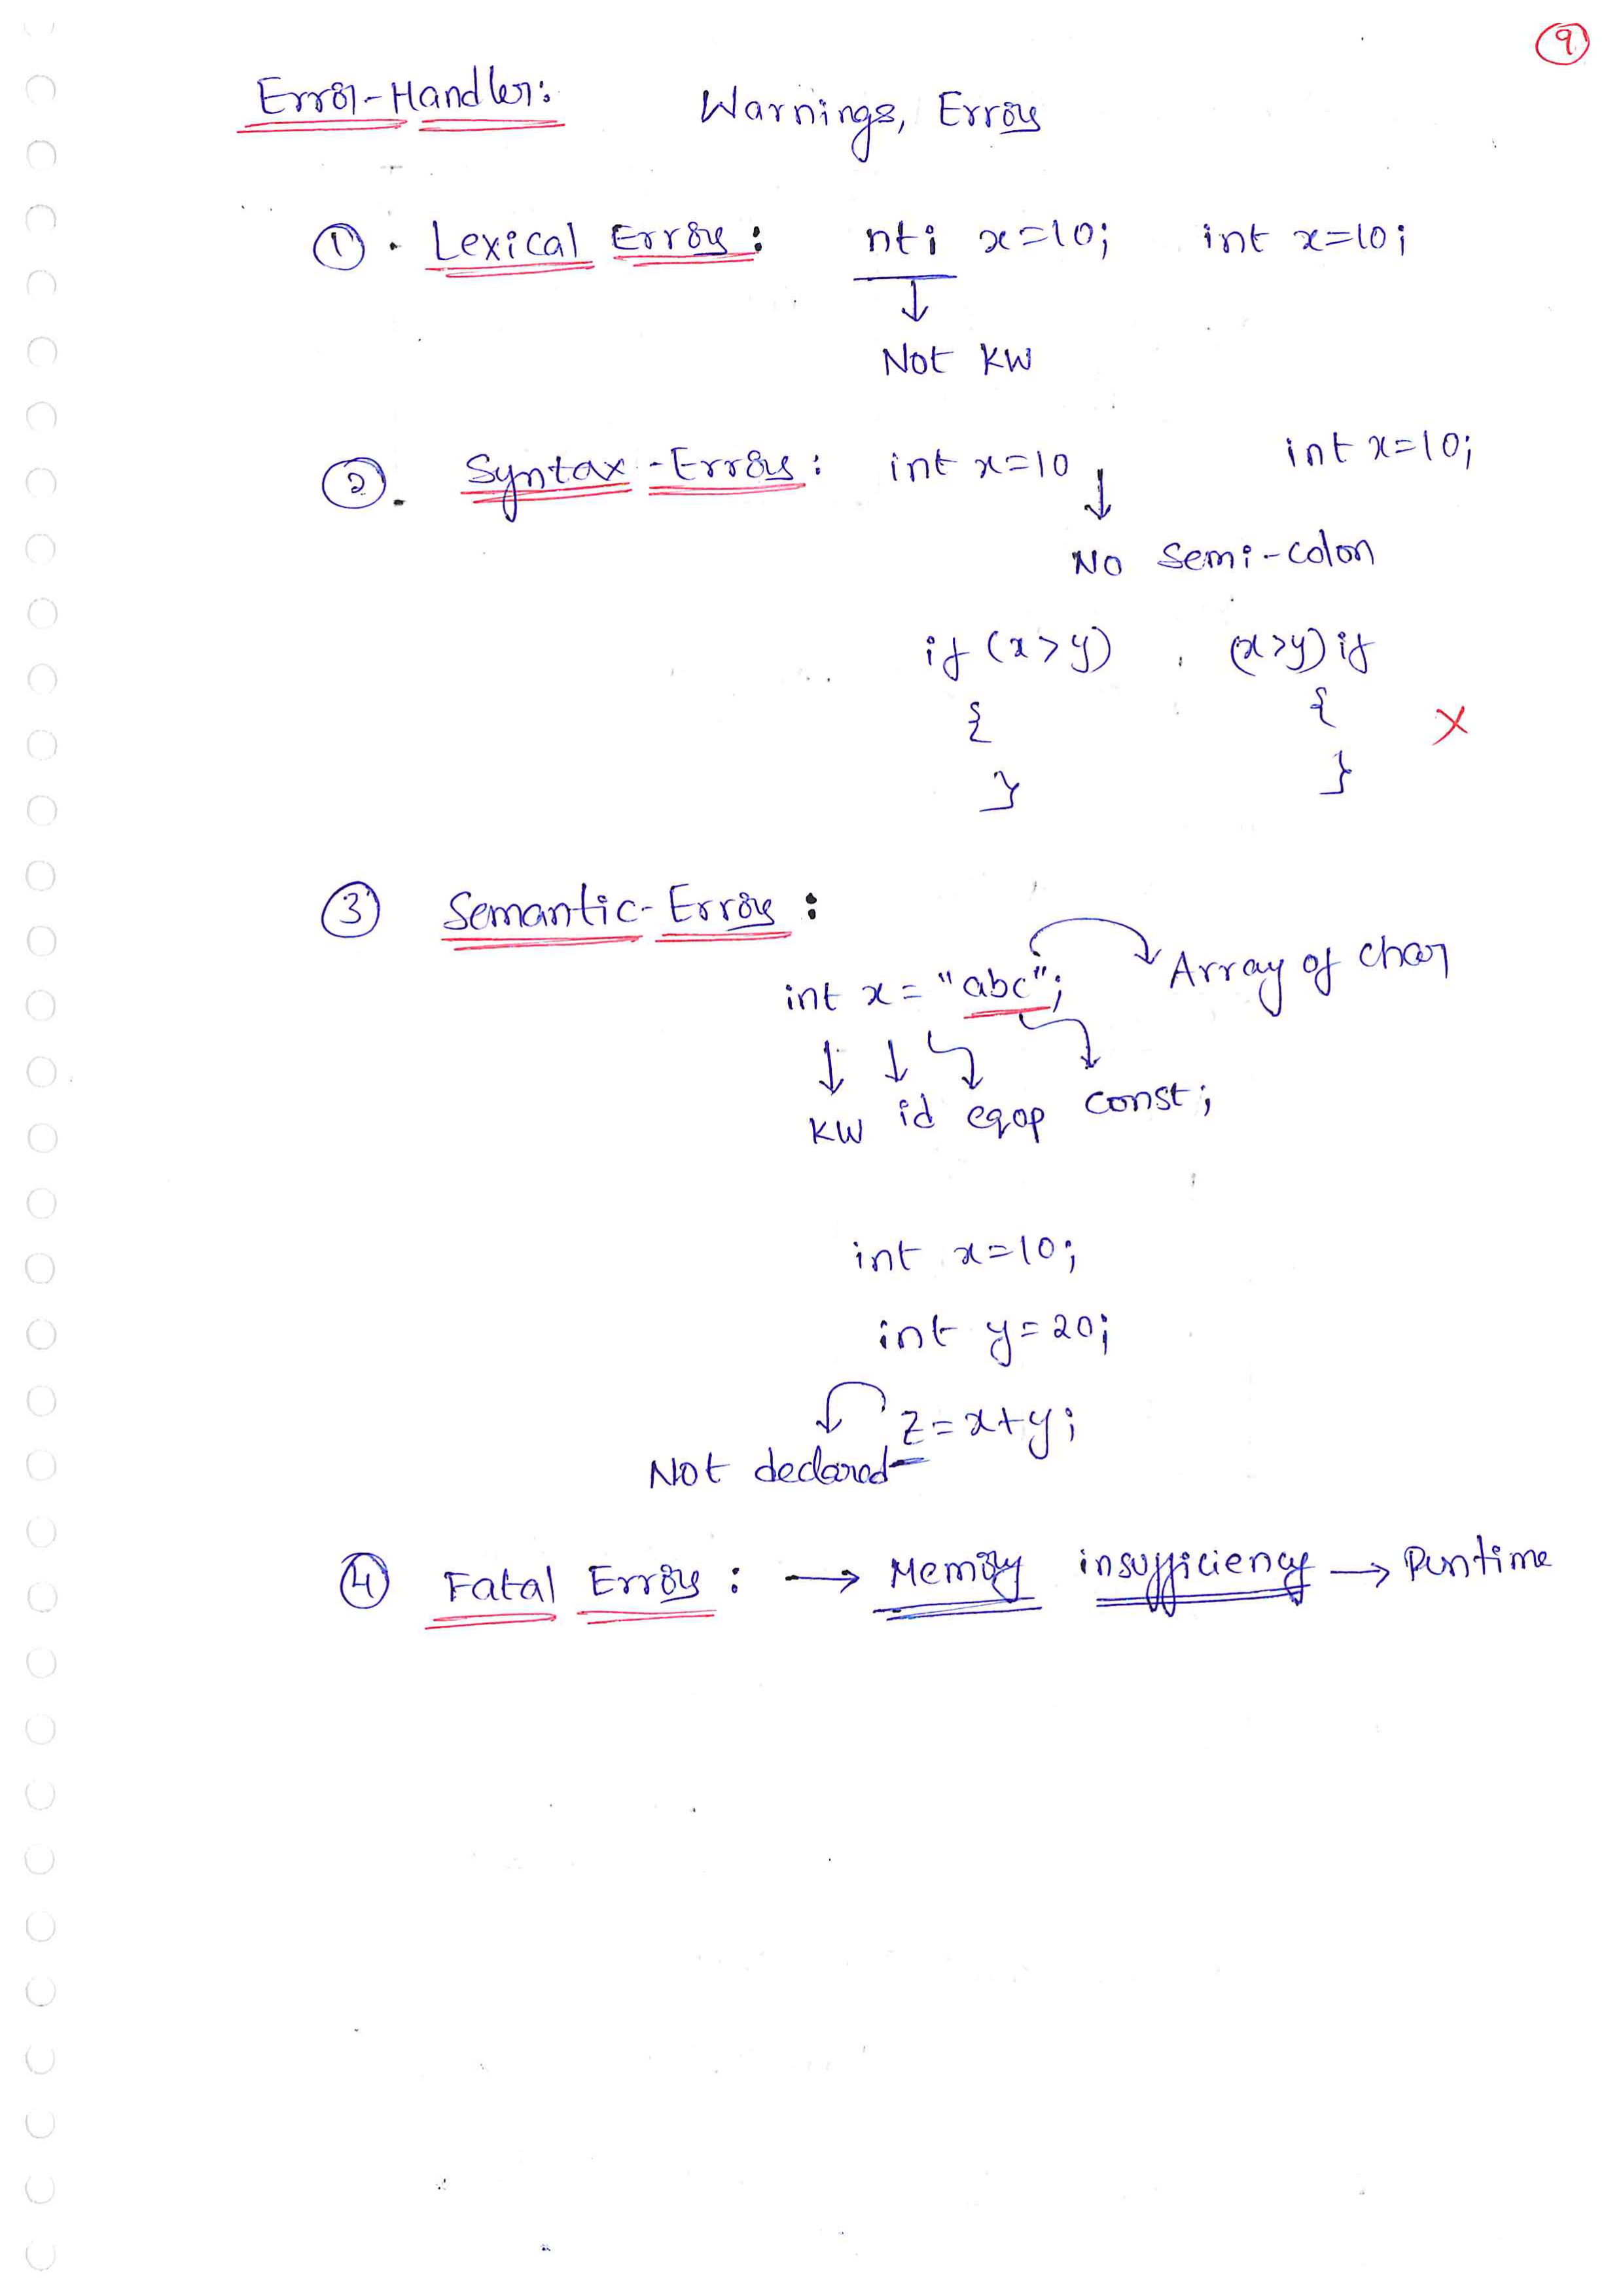 9
Error-Handler: Warnings, Errors
1. Lexical Errors: nti x=10; int x=10;
Not KW
2. Syntax-Errors: int x=10 int x=10;
No Semi-colon
if (x>y) , (x>y) if
{ { X
} }
3 Semantic-Errors:
int x = "abc"; Array of char
KW id eqop const;
int x=10;
int y=20;
z=x+y;
Not declared
4 Fatal Errors: → Memory insufficiency → Runtime